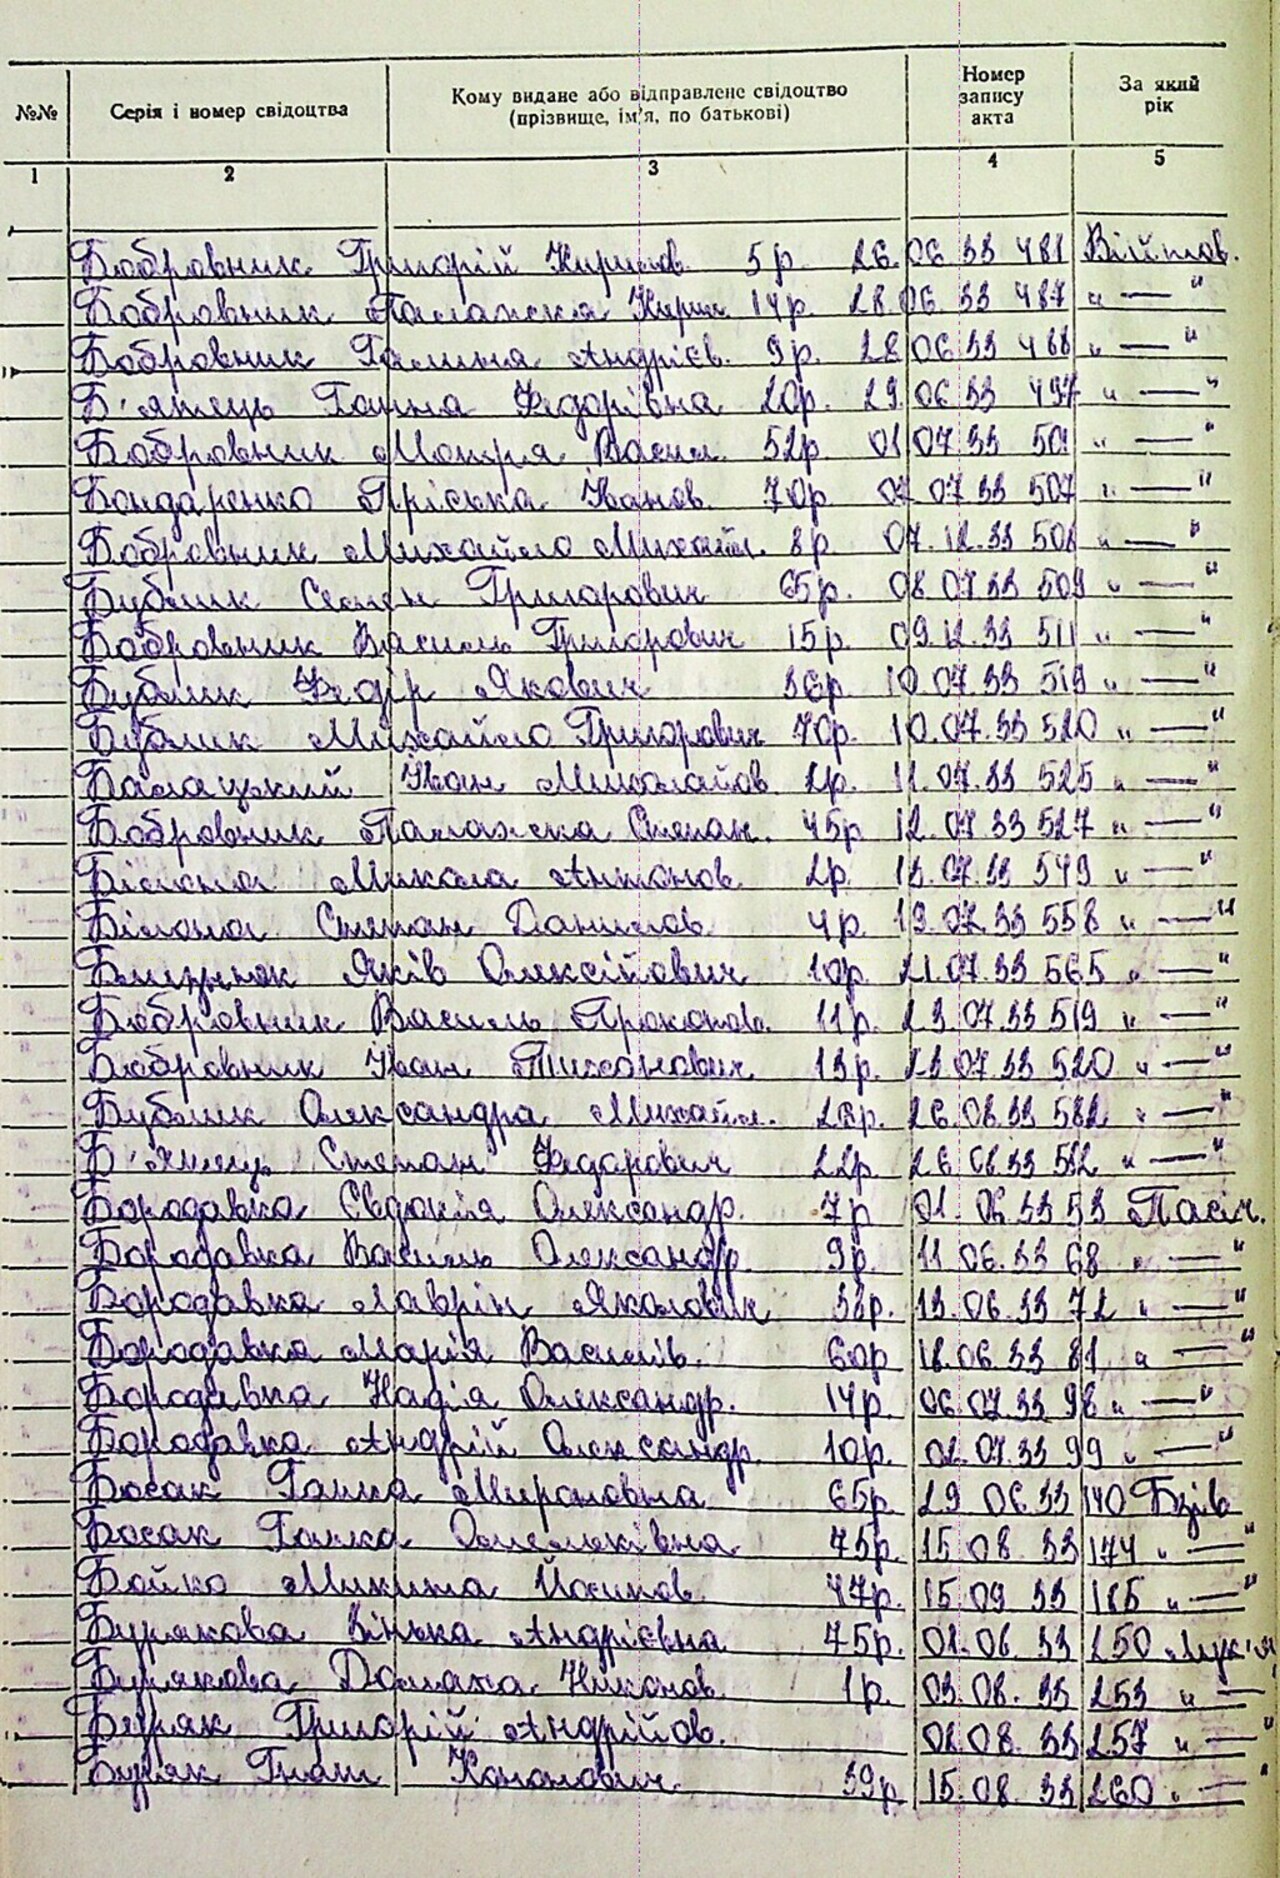 №№ Серія і номер свідоцтва Кому видане або відправлене свідоцтво (прізвище, ім'я, по батькові) Номер запису акта За який рік
1 2 3 4 5
Бобровник Григорій Кирилов. 5р. 26.06.33 481 Війтов.
Бобровник Палажка Кирил. 14р. 28.06.33 487 "—"
Бобровник Галина Андрієв. 9р. 28.06.33 488 "—"
Б'ятець Ганна Федорівна 20р. 29.06.33 497 "—"
Бобровник Мотря Васил. 52р. 01.07.33 501 "—"
Бондаренко Пріська Іванов. 70р. 07.07.33 507 "—"
Бобровник Михайло Михайл. 8р. 07.12.33 508 "—"
Бублик Семен Григорович 65р. 08.07.33 509 "—"
Бобровник Василь Григорович 15р. 09.12.33 511 "—"
Бублик Федір Якович 36р. 10.07.33 519 "—"
Бублик Михайло Григорович 70р. 10.07.33 520 "—"
Іван Миколайов. 2р. 11.07.33 525 "—"
Бобровник Палажка Степан. 45р. 12.07.33 527 "—"
Білоног Микола Антонов. 2р. 13.07.33 549 "—"
Білоног Степан Данилов. 4р. 19.07.33 558 "—"
Яків Олексійович 10р. 21.07.33 565 "—"
Бобровник Василь Прокопов. 11р. 23.07.33 519 "—"
Бобровник Іван Тихонович 13р. 23.07.33 520 "—"
Бублик Олександра Михайл. 26р. 26.08.33 582 "—"
Степан Федорович 22р. 26.08.33 582 "—"
Бородавка Євдокія Олександр. 7р 01.06.33 53 Пасіч.
Бородавка Василь Олександр. 9р. 11.06.33 68 "—"
Бородавка Лаврін Яковович 38р. 13.06.33 72 "—"
Бородавка Марія Василів. 60р 18.06.33 81 "—"
Бородавка Надія Олександр. 14р. 06.07.33 98 "—"
Бородавка Андрій Олександр. 10р. 02.07.33 99 "—"
Босак Ганна Мироновна 65р. 29.06.33 140 Бзів
Босак Ганка Омелянівна 75р. 15.08.33 174 "—"
Бойко Микита Йосипов. 47р. 15.09.33 185 "—"
Бурякова Зінька Андрієвна 75р. 01.06.33 250
Бурякова Домаха Никонов. 1р. 03.08.33 253 "—"
Буряк Григорій Андрійов. 08.08.33 257 "—"
Буряк Гнат Кононович 39р. 15.08.33 260 "—"